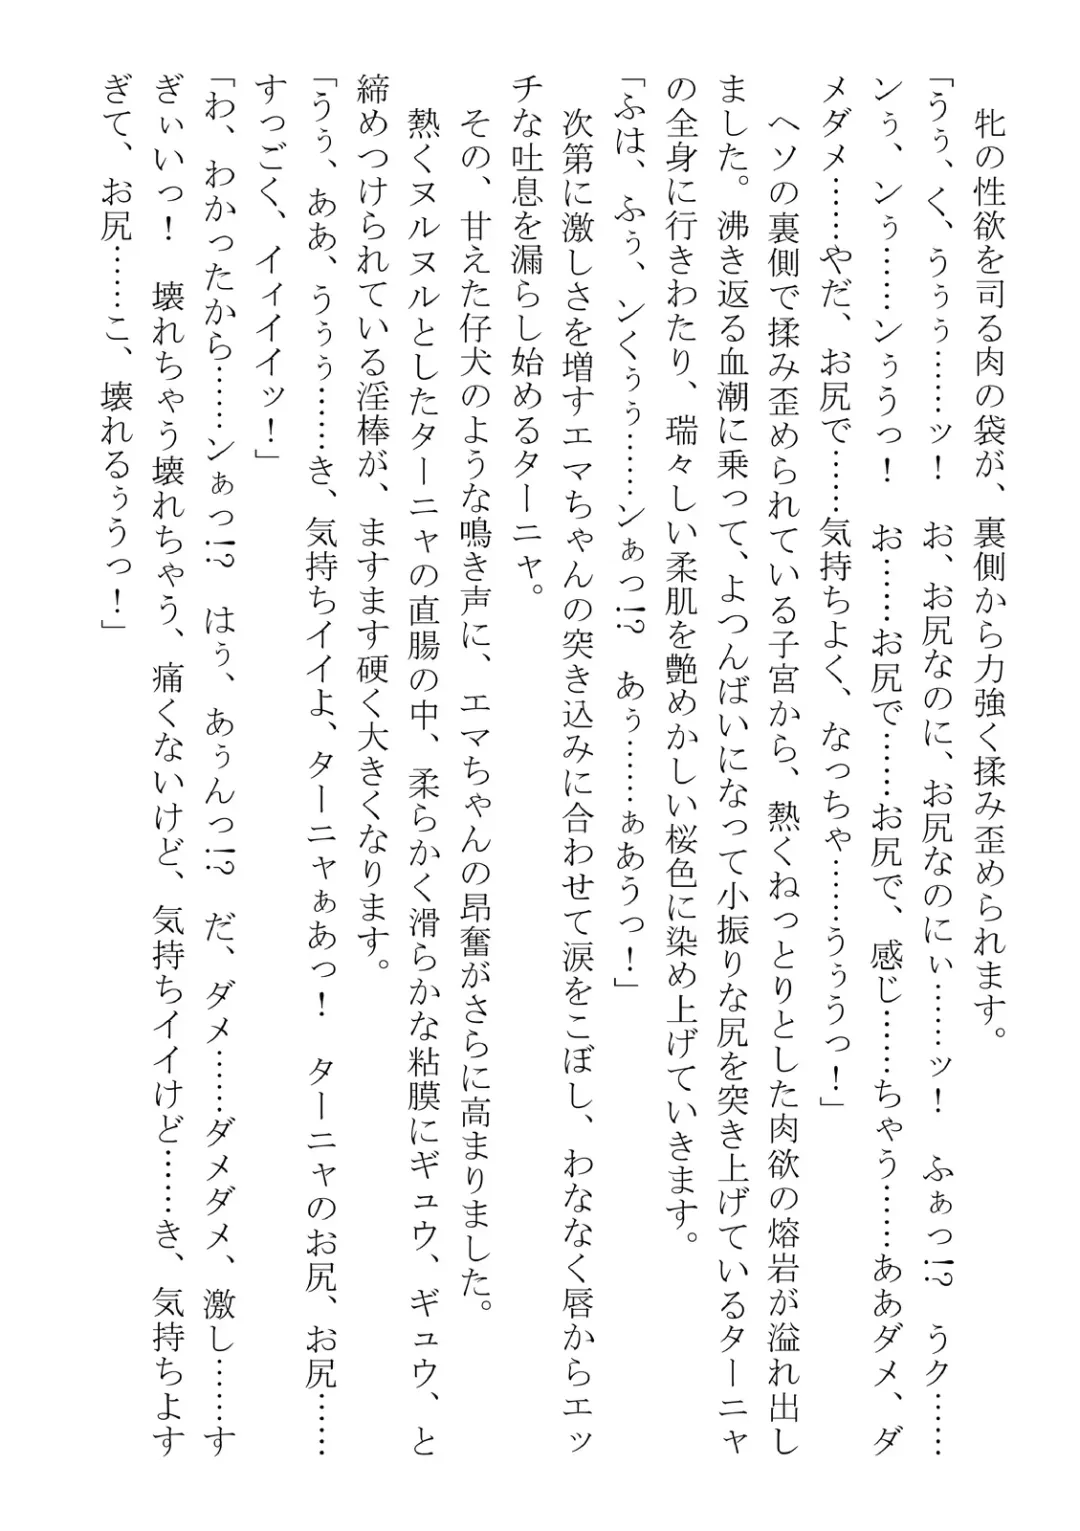 牝の性欲を司る肉の袋が、裏側から力強く揉み歪められます。
「うぅ、く、うぅぅ……ッ！　お、お尻なのに、お尻なのにぃ……ッ！　ふぁっ!?　うク……
ンぅ、ンぅ……ンぅうっ！　お……お尻で……お尻で、感じ……ちゃう……ああダメ、ダ
メダメ……やだ、お尻で……気持ちよく、なっちゃ……うぅうっ！」
ヘソの裏側で揉み歪められている子宮から、熱くねっとりとした肉欲の熔岩が溢れ出し
ました。沸き返る血潮に乗って、よつんばいになって小振りな尻を突き上げているターニャ
の全身に行きわたり、瑞々しい柔肌を艶めかしい桜色に染め上げていきます。
「ふは、ふぅ、ンくぅぅ……ンぁっ!?　あぅ……ぁあうっ！」
次第に激しさを増すエマちゃんの突き込みに合わせて涙をこぼし、わななく唇からエッ
チな吐息を漏らし始めるターニャ。
その、甘えた仔犬のような鳴き声に、エマちゃんの昂奮がさらに高まりました。
熱くヌルヌルとしたターニャの直腸の中、柔らかく滑らかな粘膜にギュウ、ギュウ、と
締めつけられている淫棒が、ますます硬く大きくなります。
「うぅ、ああ、うぅぅ……き、気持ちイイよ、ターニャぁあっ！　ターニャのお尻、お尻……
すっごく、イィイイッ！」
「わ、わかったから……ンぁっ!?　はぅ、あぅんっ!?　だ、ダメ……ダメダメ、激し……す
ぎぃいっ！　壊れちゃう壊れちゃう、痛くないけど、気持ちイイけど……き、気持ちよす
ぎて、お尻……こ、壊れるぅうっ！」